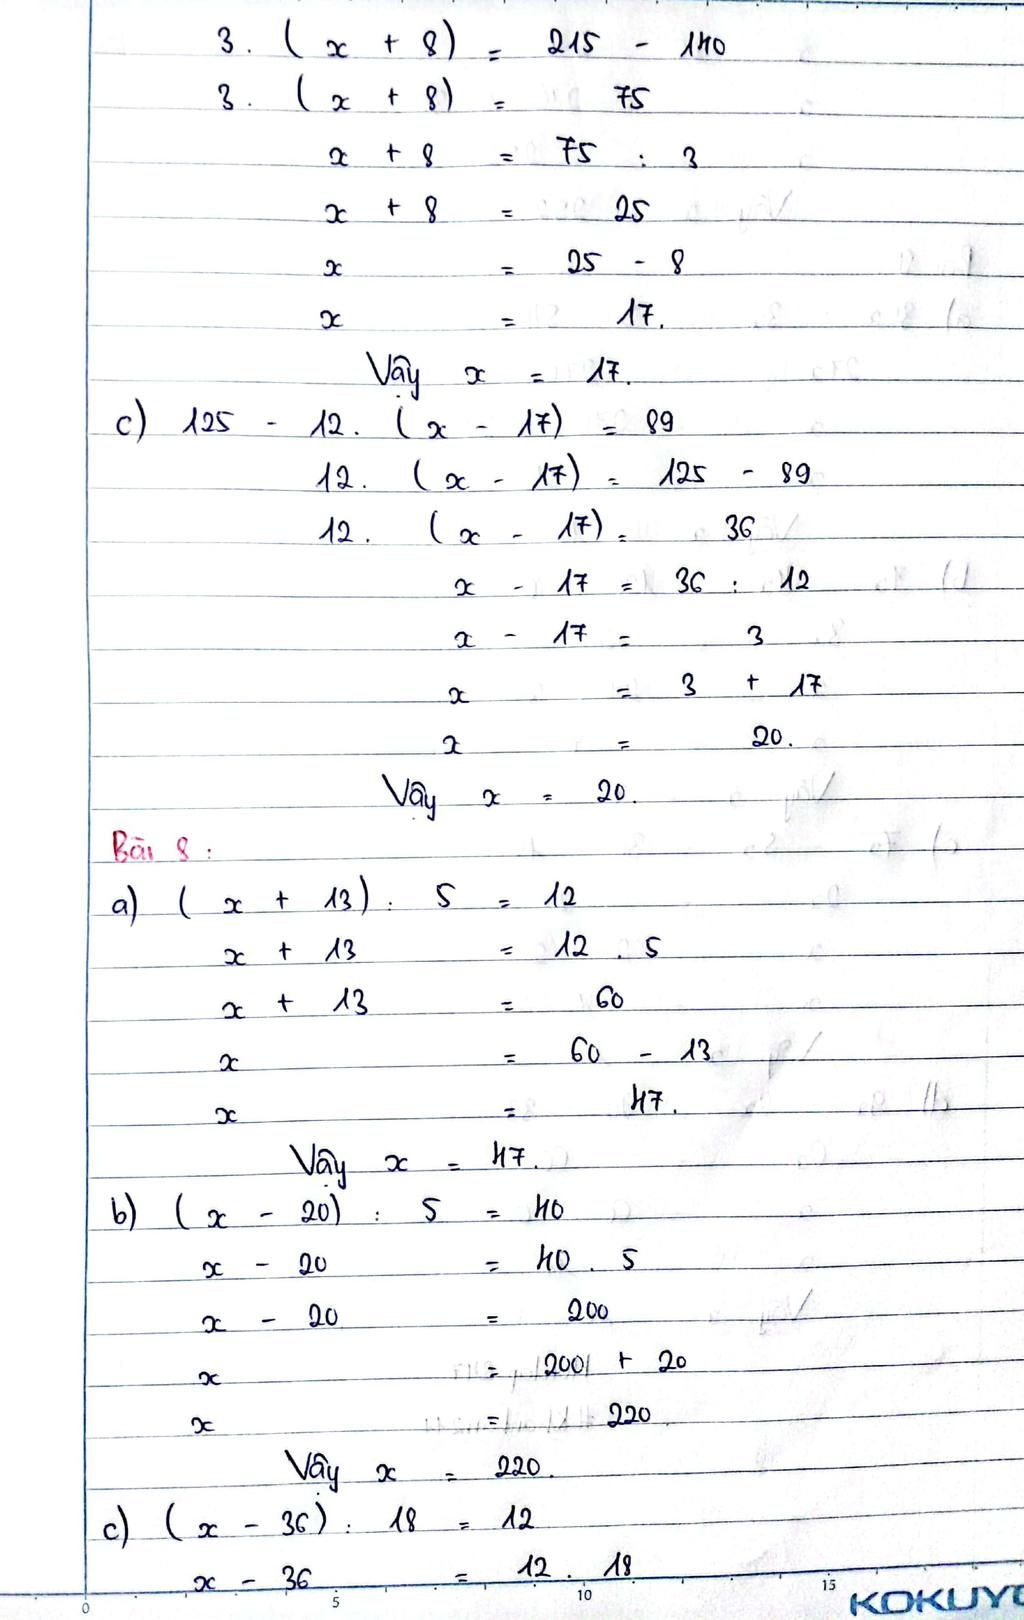 3. (x + 8) = 215 - 140
3. (x + 8) = 75
x + 8 = 75 : 3
x + 8 = 25
x = 25 - 8
x = 17.
Vậy x = 17.
c) 125 - 12. (x - 17) = 89
12. (x - 17) = 125 - 89
12. (x - 17) = 36
x - 17 = 36 : 12
x - 17 = 3
x = 3 + 17
x = 20.
Vậy x = 20.
Bài 8 :
a) (x + 13) : 5 = 12
x + 13 = 12 . 5
x + 13 = 60
x = 60 - 13
x = 47.
Vậy x = 47.
b) (x - 20) : 5 = 40
x - 20 = 40 . 5
x - 20 = 200
x = 200 + 20
x = 220
Vậy x = 220.
c) (x - 36) : 18 = 12
x - 36 = 12 . 18
0 5 10 15
KOKUYO